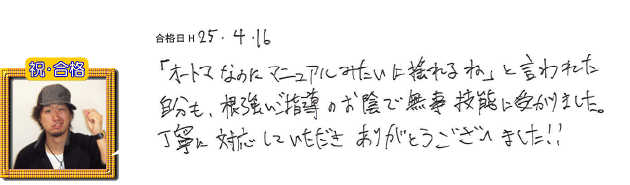 合格日 H 25・4・16
祝・合格
「オートマなのにマニュアルみたいに揺れるね」と言われた
自分も、根強いご指導のお陰で無事技能に受かりました。
丁寧に対応していただきありがとうございました!!